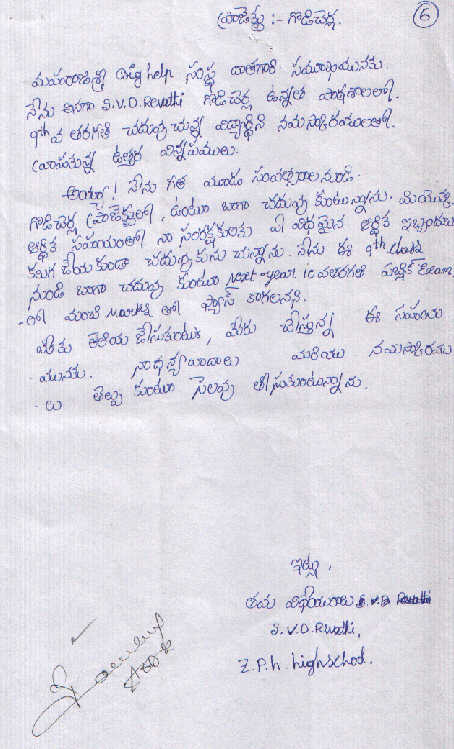 ప్రాజెక్టు :- గొడిచెర్ల.
6
మహారాజశ్రీ Big help సంస్థ దాతగారి సముఖమునకు.
నేను అనగా S.V.D. Revathi గొడిచెర్ల ఉన్నత పాఠశాలలో.
9th వ తరగతి చదువుచున్న విద్యార్థిని నమస్కారములతో.
వ్రాసుకున్న ఉత్తర విన్నపములు.
అయ్యా! నేను గత మూడు సంవత్సరాలనుండి.
గొడిచెర్ల ప్రాజెక్టులో, ఉంటూ బాగా చదువు కుంటున్నాను. మీయొక్క
ఆర్థిక సహాయంతో నా సంరక్షకులకు ఏ విధమైన ఆర్థిక ఇబ్బందులు
కలుగ చేయకుండా చదువుకును చున్నాను. నేను ఈ 9th class
నుండి బాగా చదువు కుంటూ Next year 10 వతరగతి పబ్లిక్ Exam
-లో మంచి Marks తో ప్యాస్ కాగలనని.
మీకు తెలియ జేసుకుంటూ, మీరు చేస్తున్న ఈ సహాయ
-మునకు. నా ధన్యవాదాలు మరియు నమస్కారము
-లు తెల్పు కుంటూ సెలవు తీసుకుంటున్నాను.
ఇట్లు,
తమ విధేయురాలు S.V.D Revathi
S.V.D. Revathi,
Z.P.h. highschool.